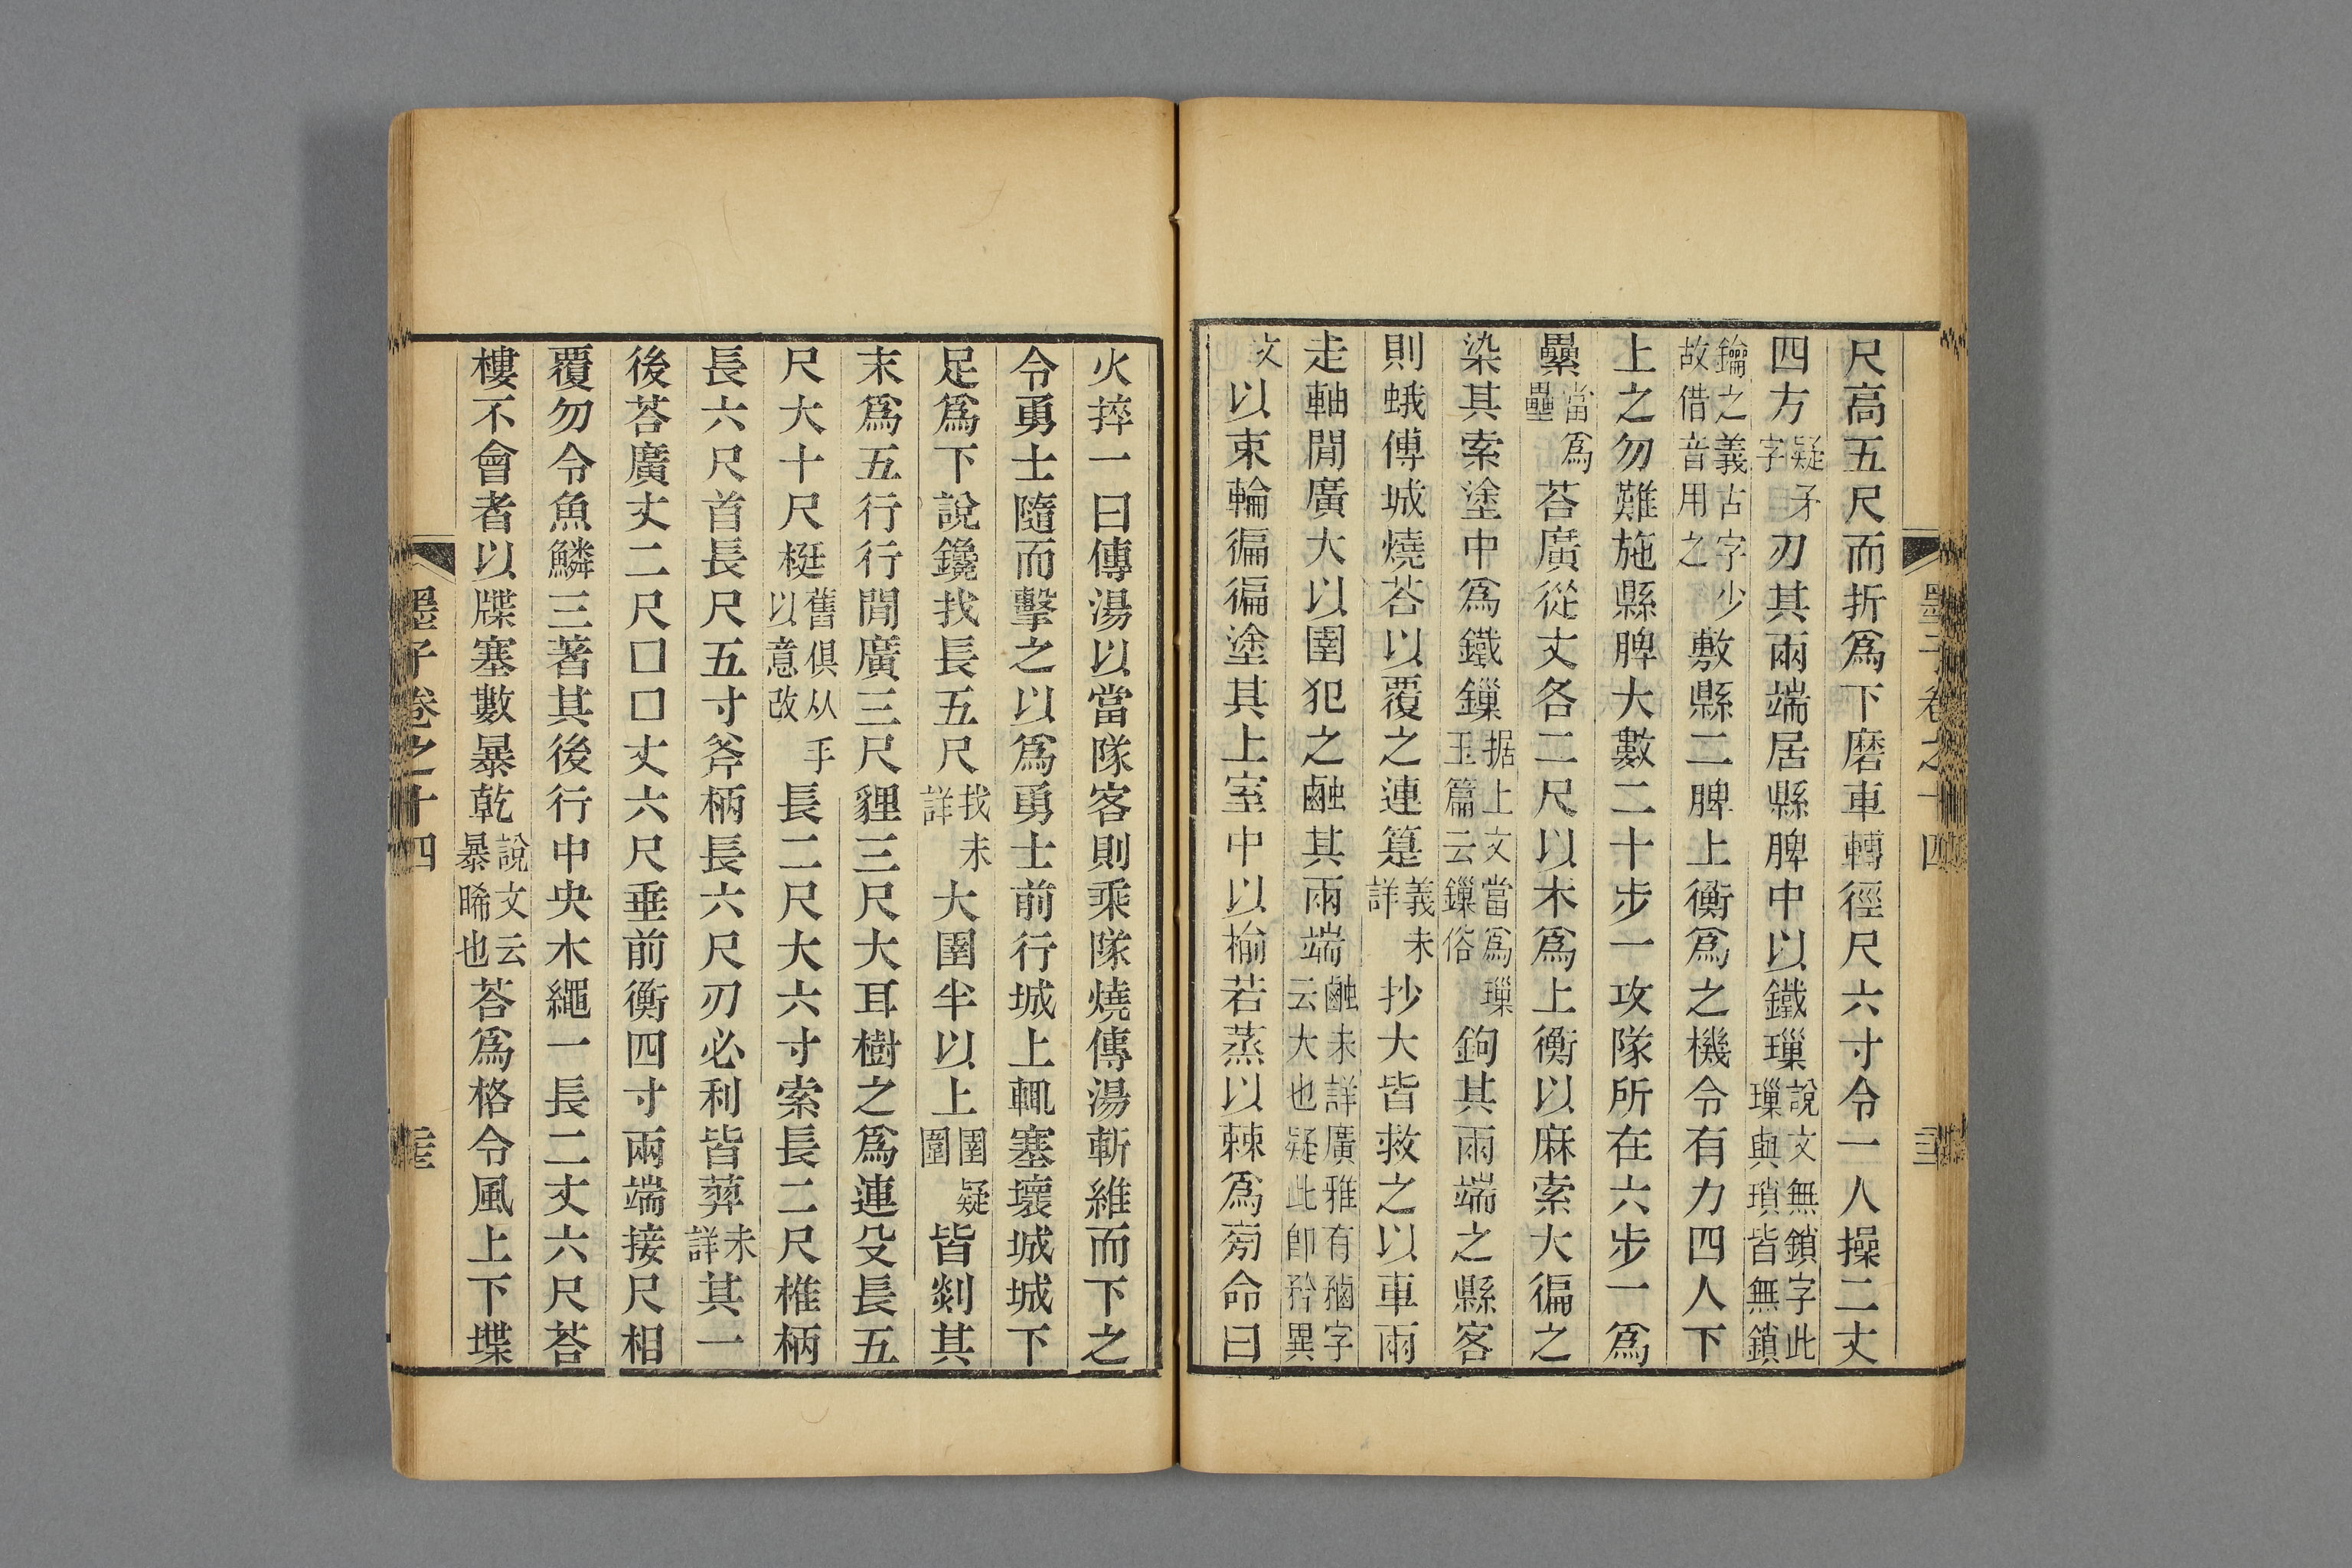 墨子卷之十四
尺高五尺而折爲下磨車轉徑尺六寸令一人操二丈
四方疑矛字刃其兩端居縣脾中以鐵璅說文無鎖字此璅與瑣皆無鎖
鑰之義古字少故借音用之敷縣二脾上衡爲之機令有力四人下
上之勿難施縣脾大數二十步一攻隊所在六步一爲
纍當爲壘荅廣從丈各二尺以木爲上衡以麻索大徧之
染其索塗中爲鐵鏁据上文當爲璅玉篇云鏁俗鉤其兩端之縣客
則蛾傅城燒荅以覆之連𥴈義未詳抄大皆救之以車兩
走軸閒廣大以圉犯之䶜其兩端䶜未詳廣雅有𧣒字云大也疑此卽矜異
文以束輪徧徧塗其上室中以榆若蒸以棘爲旁命曰
火捽一曰傳湯以當隊客則乘隊燒傳湯斬維而下之
令勇士隨而擊之以爲勇士前行城上輒塞壞城城下
足爲下說鑱找長五尺找未詳大圉半以上圉疑圍皆剡其
末爲五行行閒廣三尺貍三尺大耳樹之爲連殳長五
尺大十尺梃舊俱从手以意改長二尺大六寸索長二尺椎柄
長六尺首長尺五寸斧柄長六尺刃必利皆葬未詳其一
後荅廣丈二尺□□丈六尺垂前衡四寸兩端接尺相
覆勿令魚鱗三著其後行中央木繩一長二丈六尺荅
樓不會者以牒塞數暴乾說文云暴晞也荅爲格令風上下堞
墨子卷之十四